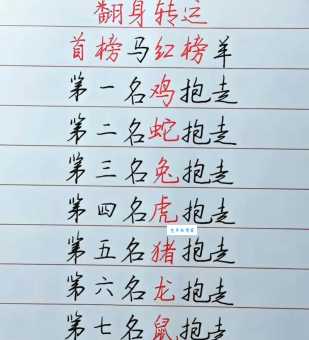 翻身转运
首榜马红榜羊
第一名鸡抱走
第二名蛇抱走
第三名兔抱走
第四名虎抱走
第五名猪抱走
第六名龙抱走
第七名鼠抱走